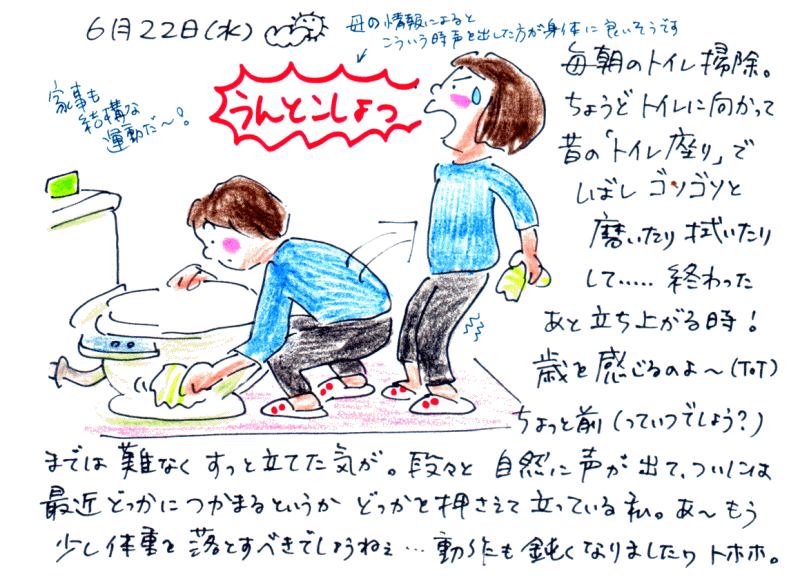 6月22日(水)
母の情報によると
こういう時声を出した方が身体に良いそうです
家事も
結構な
運動だ〜!
うんとこしょっ
毎朝のトイレ掃除。
ちょうどトイレに向かって
昔の「トイレ座り」で
しばしゴソゴソと
磨いたり拭いたり
して.....終わった
あと立ち上がる時!
歳を感じるのよ〜(ToT)
ちょっと前(っていつでしょう?)
までは難なくすっと立てた気が。段々と自然に声が出て、ついには
最近どっかにつかまるというかどっかを押さえて立っている私。あ〜もう
少し体重を落とすべきでしょうねぇ…動作も鈍くなりましたワトホホ。